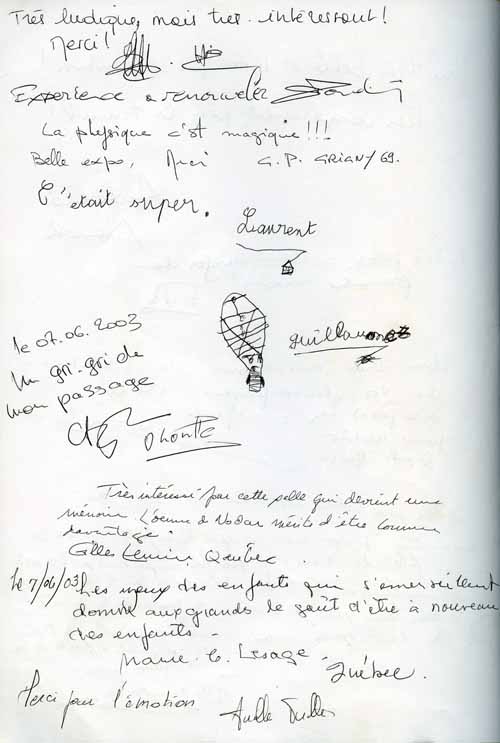 Très ludique, mais très intéressant!
Merci!
Expérience à renouveler
La physique c'est magique!!!
Belle expo, Merci G.P. GRIGNY 69.
C'était super.
Laurent
Guillaume
le 07.06.2003
Un gri-gri de
mon passage
Très intéressé par cette salle qui devient une
mémoire L'oeuvre de Nadar mérite d'être connue
davantage.
Gilles Québec.
Le 7/06/03 Les yeux des enfants qui s'émerveillent
donne aux grands le goût d'être à nouveau
des enfants -
Marie. C. Lesage - Québec.
Merci pour l'émotion